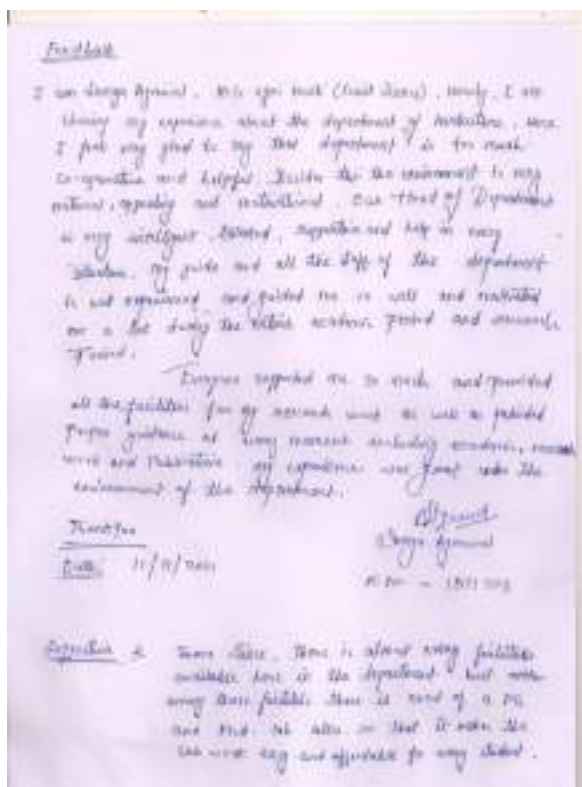 Feedback
I am Durga Agrawal, M.Sc. Agri. Hort. (Fruit Science), Firstly, I am
sharing my experience about the department of Horticulture, here
I feel very glad to say that department is too much
Co-operative and helpful. Besides this the environment is very
and motivational. Our Head of Department
is very intelligent, talented, supportive and help in every
situation. My guide and all the staff of the department
is well experienced and guided me so well and motivated
me a lot during the entire academic period and research
Period.
Everyone supported me so much and provided
all the facilities for my research work as well as provided
Proper guidance at every moment including academic, research
work and Publication. My experience was great under the
environment of the department.
Thank you
Agrawal
Date:
Suggestion
There is almost every facilities
available here in the department but
among these facilities there is need of a PG
and PhD lab also so that it makes the
lab work easy and affordable for every student.